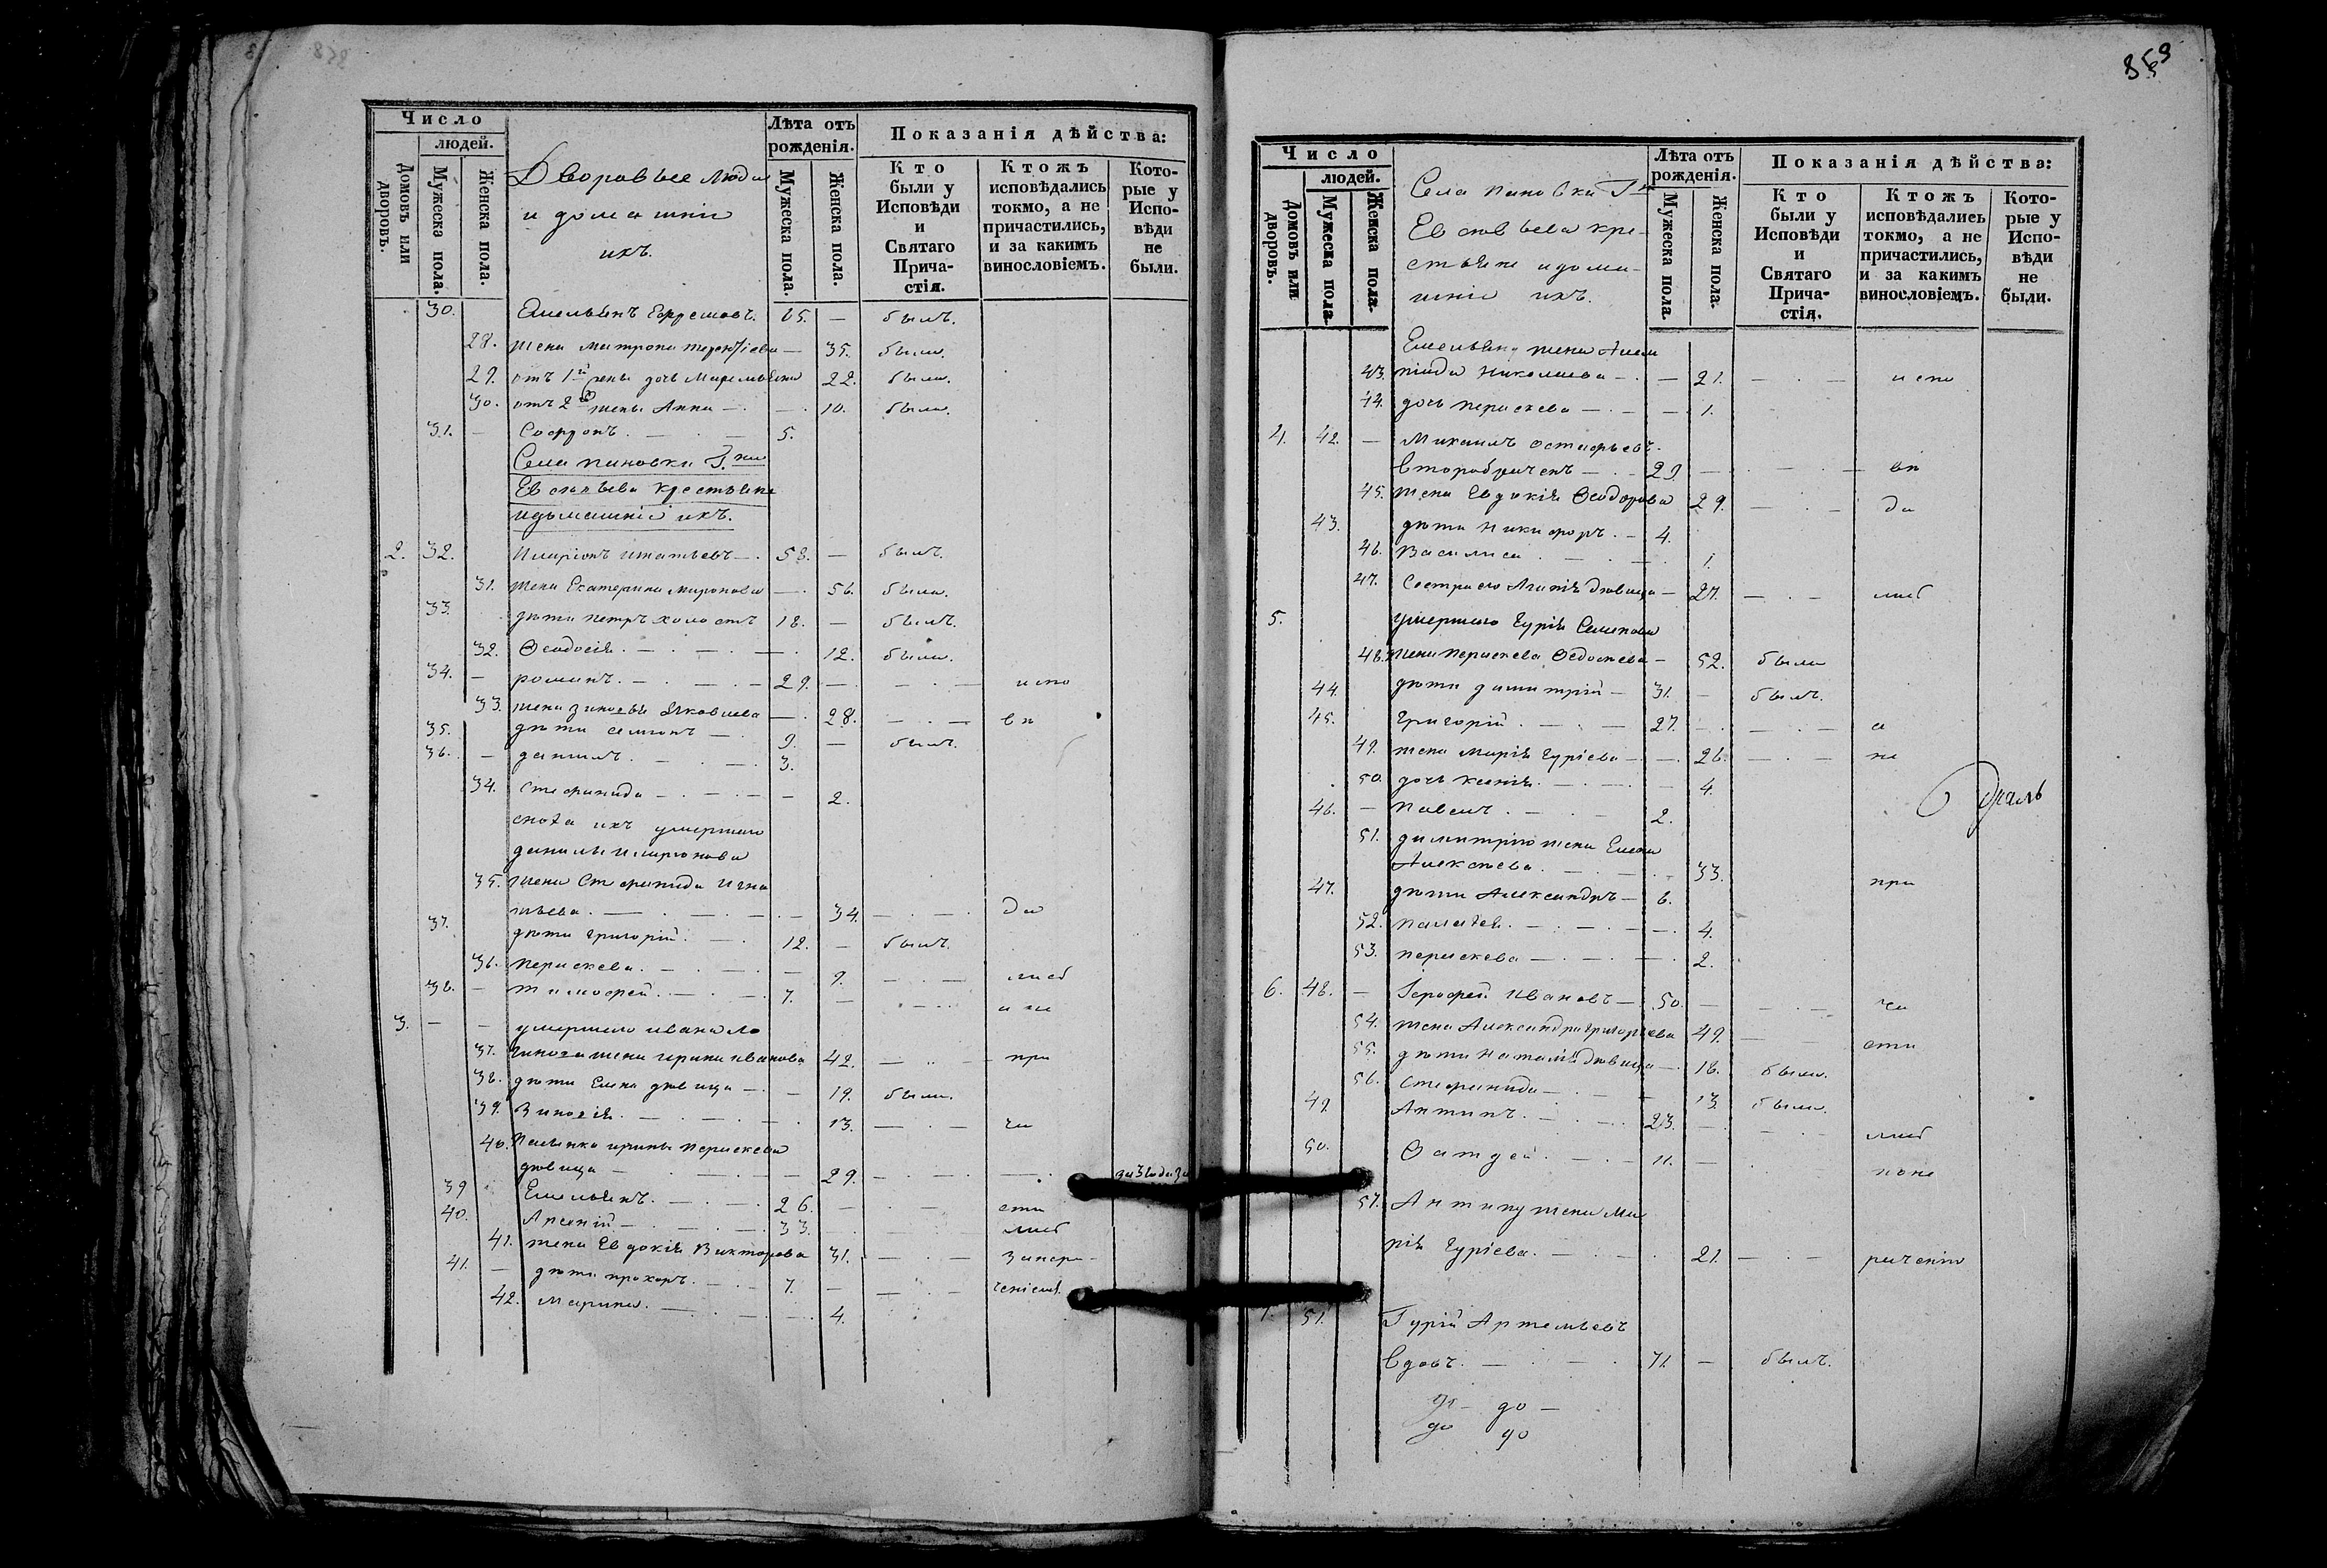 858
Число
людей.
Домовъ или дворовъ.
Мужеска пола.
Женска пола.
Дворовые люди
и домашніе
ихъ.
Лѣта отъ рожденія.
Мужеска пола.
Женска пола.
Показанія дѣйства:
Кто были у Исповѣди и Святаго Прича- стія.
Ктожъ исповѣдались токмо, а не причастились, и за какимъ винословіемъ.
Кото- рые у Испо- вѣди не были.
30. Емельянъ Ефремовъ. 65. — былъ.
28. жена Матрона Терентіева — 35. была.
29. отъ 1й жены дочь Маремьяна 22. была.
30. отъ 2й жены Анна — 10. была.
31. — Софронъ. — 5.
Села Пановки Г.на
Евсевьева крестьяне
и домашніе ихъ.
2. 32. Иларіонъ Игнатьевъ — 58. — былъ.
31. жена Екатерина Миронова — 56. была.
33. дѣти Петръ холостъ 18. — былъ.
32. Ѳеодосія. — 12. была.
34. — романъ. — 29. — испо
33. жена Зиновья Яковлева — 28. — вѣ
35. дѣти Семіонъ — 9. — былъ.
36. — Даніилъ. — 3.
34. Стефанида — 2.
сноха ихъ умершаго
Даниила Иларіонова
35. жена Стефанида Игна
тьева. — 34. — да
37. дѣти Григорій. — 12. — былъ.
36. Параскева. — 9. — лисъ
38. — Тимофей. — 7. — и не
3. — — умершаго Ивана Ло
37. гинова жена Ирина Иванова 42. — при
38. дѣти Елена дѣвица — 19. была.
39. Зиновія. — 13. — ча
40. Параскева
дѣвица — 29. —
39 Емельянъ. — 26. — сти
40. Арсеній — 33. лисъ
41. жена Евдокія Викторова 31. — за нера-
41. — дѣти Прохоръ. — 7. — ченіемъ.
42. Марина. — 4.
859
Число
людей.
Домовъ или дворовъ.
Мужеска пола.
Женска пола.
Села Пановки Г.на
Евсевьева кре-
стьяне и дома-
шніе ихъ.
Лѣта отъ рожденія.
Мужеска пола.
Женска пола.
Показанія дѣйства:
Кто были у Исповѣди и Святаго Прича- стія.
Ктожъ исповѣдались токмо, а не причастились, и за какимъ винословіемъ.
Кото- рые у Испо- вѣди не были.
Емельяна жена
43. Николаева — 21. — испо
44. дочь Параскева — 1.
4. 42. — Михаилъ Остафьевъ.
второбраченъ — 29. — вѣ
45. жена Евдокія Ѳеодорова 29. — да
43. дѣти Никифоръ. — 4.
46. Василиса. — 1.
47. Сестра его Агапія дѣвица — 27. — лисъ
5. умершаго Гурія Семенова
48. жена Параскева Ѳедосеева — 52. была
44. дѣти Димитрій — 31. — былъ.
45. Григорій. — 27. — а
49. жена Марія Гуріева — 26. — не
50. дочь Ксенія. — 4.
46. — Павелъ. — 2.
51. Димитрію жена Елена
Алексѣева. — 33. при
47. дѣти Александръ — 6.
52. Палагея. — 4.
53. Параскева — 2.
6. 48. — Іерофей Ивановъ — 50. — ча
54. жена Александра Григорьева 49. — сти
55. дѣти Наталія дѣвица — 18. была.
56. Стефанида — 13. была.
49. Антипъ. — 23. — лисъ
50. Ѳатдей. — 11. — по не
57. Антипу жена Ма
рія Гуріева. — 21. — раченію
7. 51. Гурій Артемьевъ
вдовъ. — 71. — былъ.
до — до —
до до